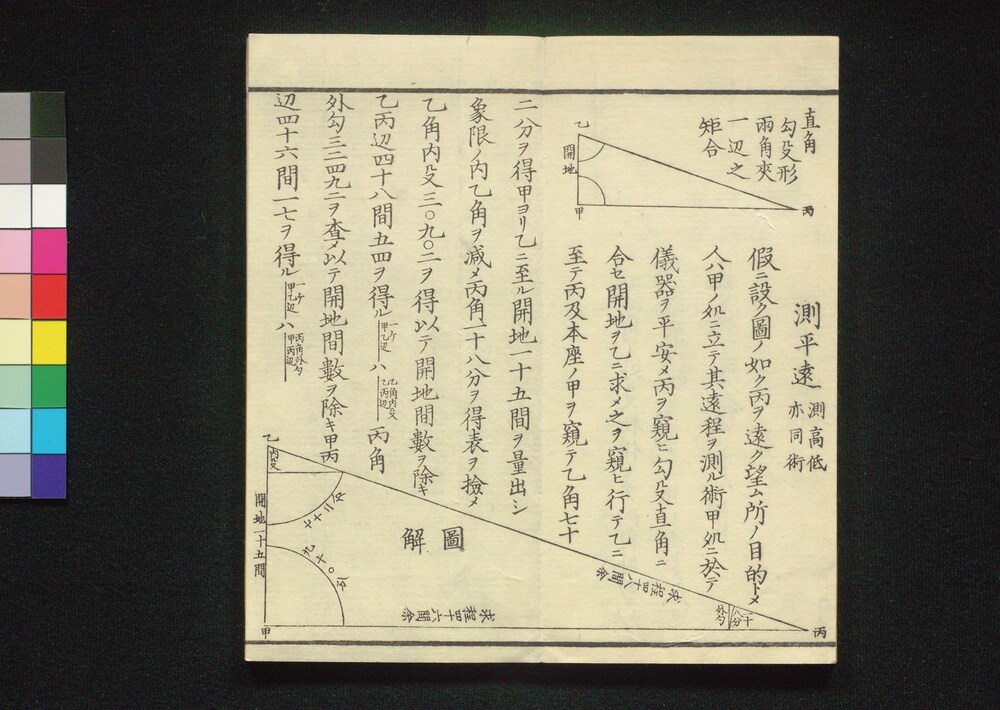 直角
勾殳形
両角夾
一辺之
矩合
乙
開地
甲
丙
測平遠
測高低
亦同術
假ニ設ク圖ノ如ク丙ヲ遠ク望ム所ノ目的トメ
人八甲ノ処ニ立テ其遠程ヲ測ル術甲処ニ於テ
儀器ヲ平安メ丙ヲ窺ヒ勾殳直角ニ
合セ開地ヲ乙ニ求メ之ヲ窺ヒ行テ乙ニ
至テ丙及本座ノ甲ヲ窺テ乙角七十
二分ヲ得甲ヨリ乙ニ至ル開地一十五間ヲ量出シ
象限ノ内乙角ヲ減メ丙角一十八分ヲ得表ヲ撿メ
乙角内殳三〇九〇二ヲ得以テ開地間數ヲ除キ
乙丙辺四十八間五四ヲ得ル
一ケ
甲乙辺
ハ
乙角内殳
乙丙辺
丙角
外勾三二四九二ヲ査メ以テ開地間數ヲ除キ甲丙
辺四十六間一七ヲ得ル
一ケ
甲乙辺
ハ
丙角外勾
甲丙辺
圖解
乙
内殳
七十二分
開地一十五間
九十〇分
甲
求程四十八間余
求程四十六間余
外勾
一十八分
丙